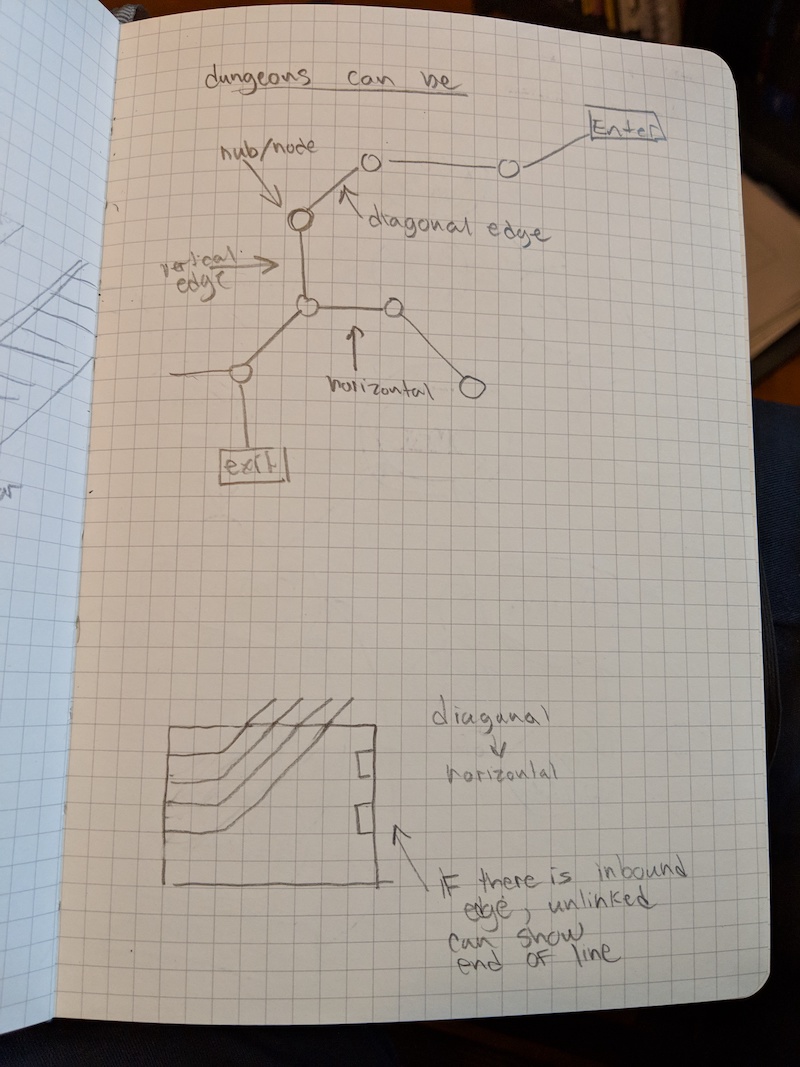 dungeons can be
Enter
hub/node
diagonal edge
vertical
edge
horizontal
exit
diaganal
horizontal
IF there is inbound
edge, unlinked
can show
end of line